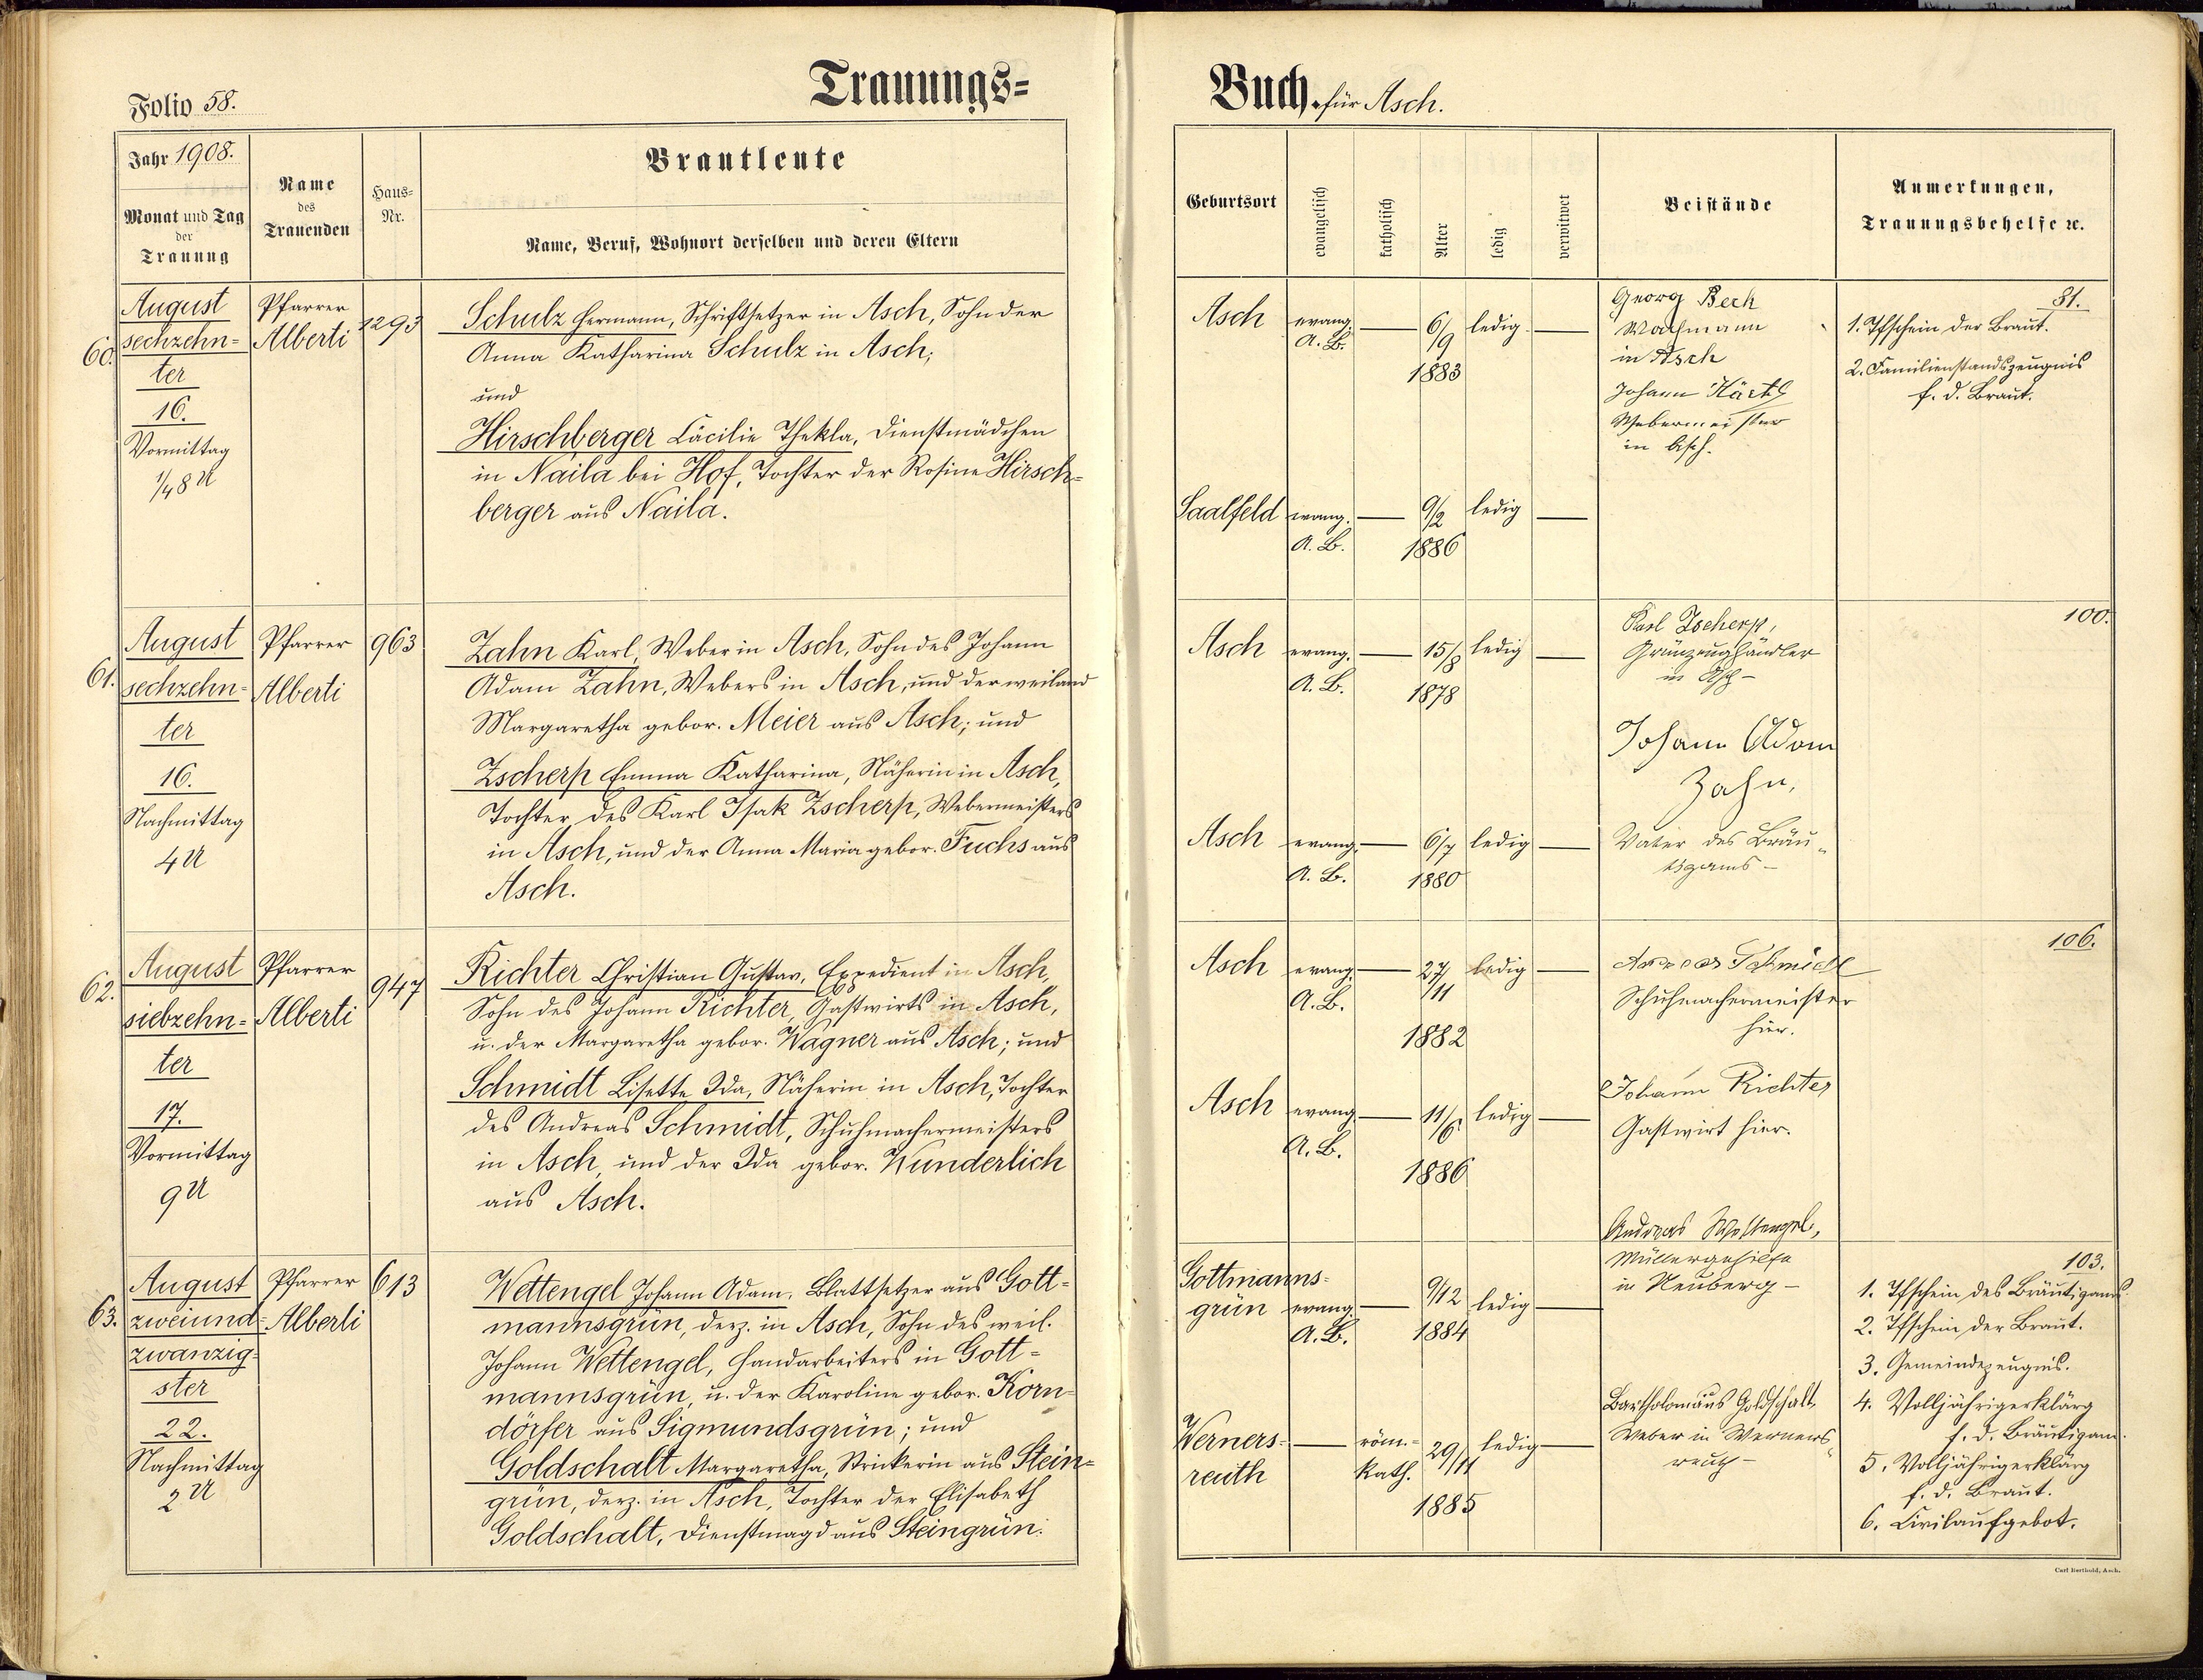 Folio 58.
Trauungs=
Jahr 1908.
Monat und Tag
der
Trauung
Name
des
Trauenden
Haus=
Nr.
Brautleute
Name, Beruf, Wohnort derselben und deren Eltern
60.
August
sechzehn=
ter
16.
Vormittag
1/48 U
Pfarrer
Alberti
1293
Schulz Hermann, Schriftsetzer in Asch, Sohn der
Anna Katharina Schulz in Asch;
und
Hirschberger Cäcilie Thekla, Dienstmädchen
in Naila bei Hof, Tochter der Rosine Hirsch=
berger aus Naila.
61.
August
sechzehn=
ter
16.
Nachmittag
4 U
Pfarrer
Alberti
963
Zahn Karl, Weber in Asch, Sohn des Johann
Adam Zahn, Webers in Asch, und der weiland
Margaretha gebor. Meier aus Asch; und
Zscherp Emma Katharina, Näherin in Asch,
Tochter des Karl Isak Zscherp, Webermeisters
in Asch, und der Anna Maria gebor. Fuchs aus
Asch.
62.
August
siebzehn=
ter
17.
Vormittag
9 U
Pfarrer
Alberti
947
Richter Christian Gustav, Expedient in Asch,
Sohn des Johann Richter, Gastwirts in Asch,
u. der Margaretha gebor. Wagner aus Asch; und
Schmidt Lisette Ida, Näherin in Asch, Tochter
des Andreas Schmidt, Schuhmachermeisters
in Asch, und der Ida gebor. Wunderlich
aus Asch.
63.
August
zweiund=
zwanzig=
ster
22.
Nachmittag
2 U
Pfarrer
Alberti
613
Wettengel Johann Adam, Blattsetzer aus Gott=
mannsgrün, derz. in Asch, Sohn des weil.
Johann Wettengel, Handarbeiters in Gott=
mannsgrün, u. der Karoline gebor. Korn=
dörfer aus Sigmundsgrün; und
Goldschalt Margaretha, Strickerin aus Stein=
grün, derz. in Asch, Tochter der Elisabeth
Goldschalt, Dienstmagd aus Steingrün.
Buch. für Asch.
Geburtsort
evangelisch
katholisch
Alter
ledig
verwitwet
Beistände
Anmerkungen,
Trauungsbehelfe ꝛc.
Asch
evang.
A. B.
6/9
1883
ledig
Georg Beck
in Asch
Johann
Webermeister
in Asch.
81.
1. Tfschein der Braut.
2. Familienstandszeugnis
f. d. Braut.
Saalfeld
evang.
A. B.
9/2
1886
ledig
Asch
evang.
A. B.
15/8
1878
ledig
Karl Zscherp,
Grünzeughändler
in Asch –
Johann Adam
Zahn,
Vater des Bräu„
tigams –
100.
Asch
evang.
A. B.
6/7
1880
ledig
Asch
evang.
A. B.
27/11
1882
ledig
Andreas Schmidt
Schuhmachermeister
hier.
106.
Asch
evang.
A. B.
11/6
1886
ledig
Johann Richter
Gastwirt hier.
Gottmanns=
grün
evang.
A. B.
9/12
1884
ledig
Andreas Wettengel,
Müllergehilfe
in Neuberg –
103.
1. Tfschein des Bräutigams.
2. Tfschein der Braut.
3. Gemeindezeugnis.
4. Volljährigerklärg
f. d. Bräutigam.
5. Volljährigerklärg
f. d. Braut.
6. Civilaufgebot.
Werners=
reuth
röm.=
kath.
29/11
1885
ledig
Bartholomäus Goldschalt
Weber in Werners„
reuth –
Carl Berthold, Asch.